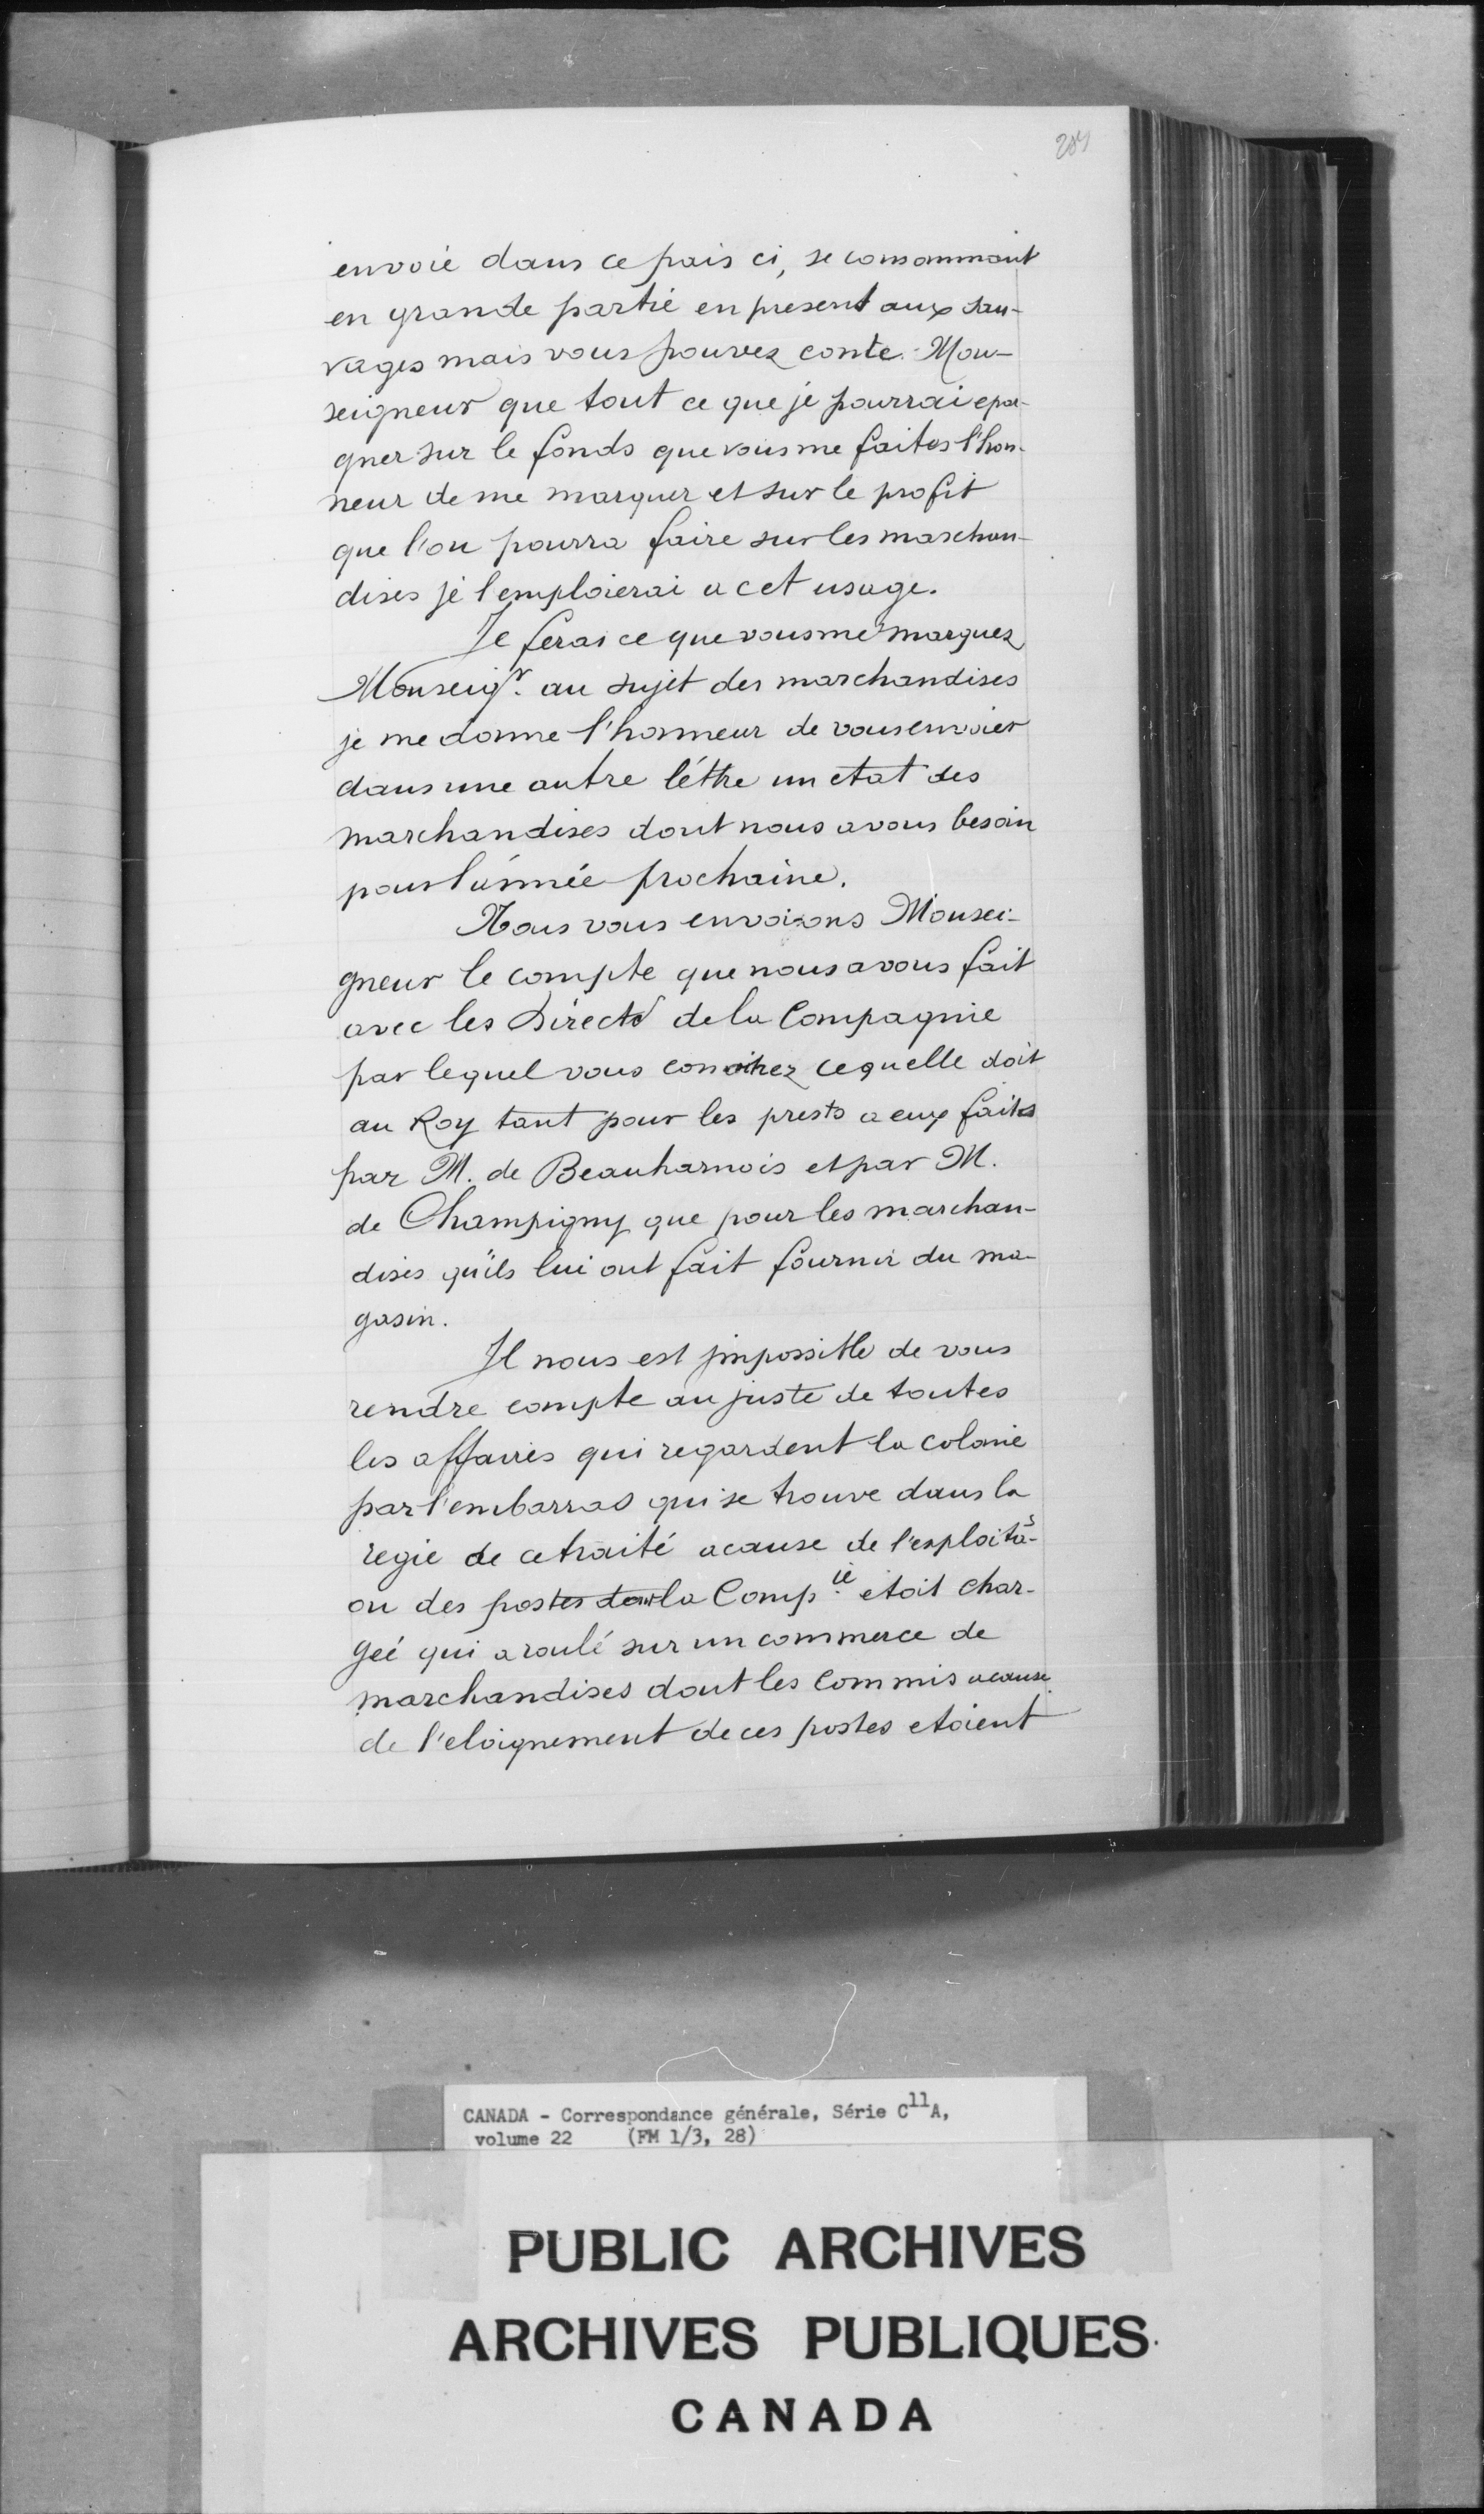 envoie dans ce païs ci, se consommant
en grande partie en present aux sau-
vages mais vous pouvez conte. Mon-
seigneur que tout ce que je pourrai epar-
gner sur le fonds que vous me faites l'hon-
neur de me marquer et sur le profit
que l'on pourra faire sur les marchan-
dises je l'emploierai a cet usage.
Je ferai ce que vous me marquez
Monseigr. au sujet des marchandises
je me donne l'honneur de vous envoier
dans une autre léttre un etat des
marchandises dont nous avons besoin
pour l'année prochaine.
Nous vous envoions Monsei-
gneur le compte que nous avons fait
avec les Directrs de la Compagnie
par lequel vous conoitrez ce quelle doit
au Roy tant pour les prests a eux faits
par M. de Beauharnois et par M.
de Champigny que pour les marchan-
dises qu'ils lui ont fait fournir du ma-
gasin.
Il nous est jmpossible de vous
rendre compte au juste de toutes
les affaires qui regardent la colonie
par l'embarras qui se trouve dans la
regie de ce traité a cause de l'exploita-
on des postes dont la Compie. etoit char-
geé qui a roulé sur un commerce de
marchandises dont les Commis a cause
de l'eloignement de ces postes etoient
CANADA - Correspondance générale, Série C11A,
volume 22 (FM 1/3, 28)
PUBLIC ARCHIVES
ARCHIVES PUBLIQUES
CANADA